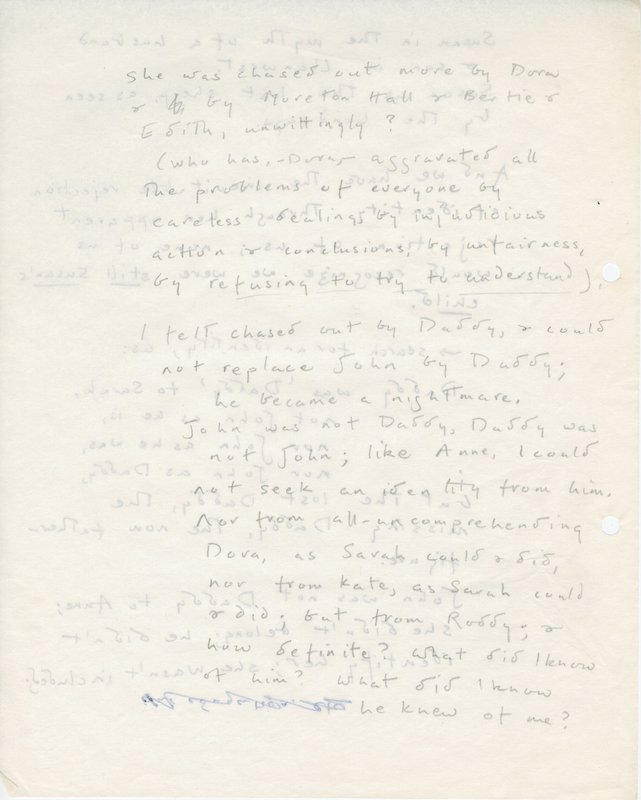 She was chased out more by Dora
& by Moreton Hall & Bertie &
Edith, unwittingly?
(who has, -Dora- aggravated all
the problems of everyone by
careless dealings by injudicious
action & conclusions, by unfairness,
by refusing to try to understand).
I felt chased out by Daddy, & could
not replace John by Daddy;
he became a nightmare.
John was not Daddy, Daddy was
not John; like Anne, I could
not seek an identity from him.
Nor from all-uncomprehending
Dora, as Sarah could & did,
nor from Kate, as Sarah could
& did; but from Roddy; &
how definite? What did I know
of him? What did I know
he knew of me?